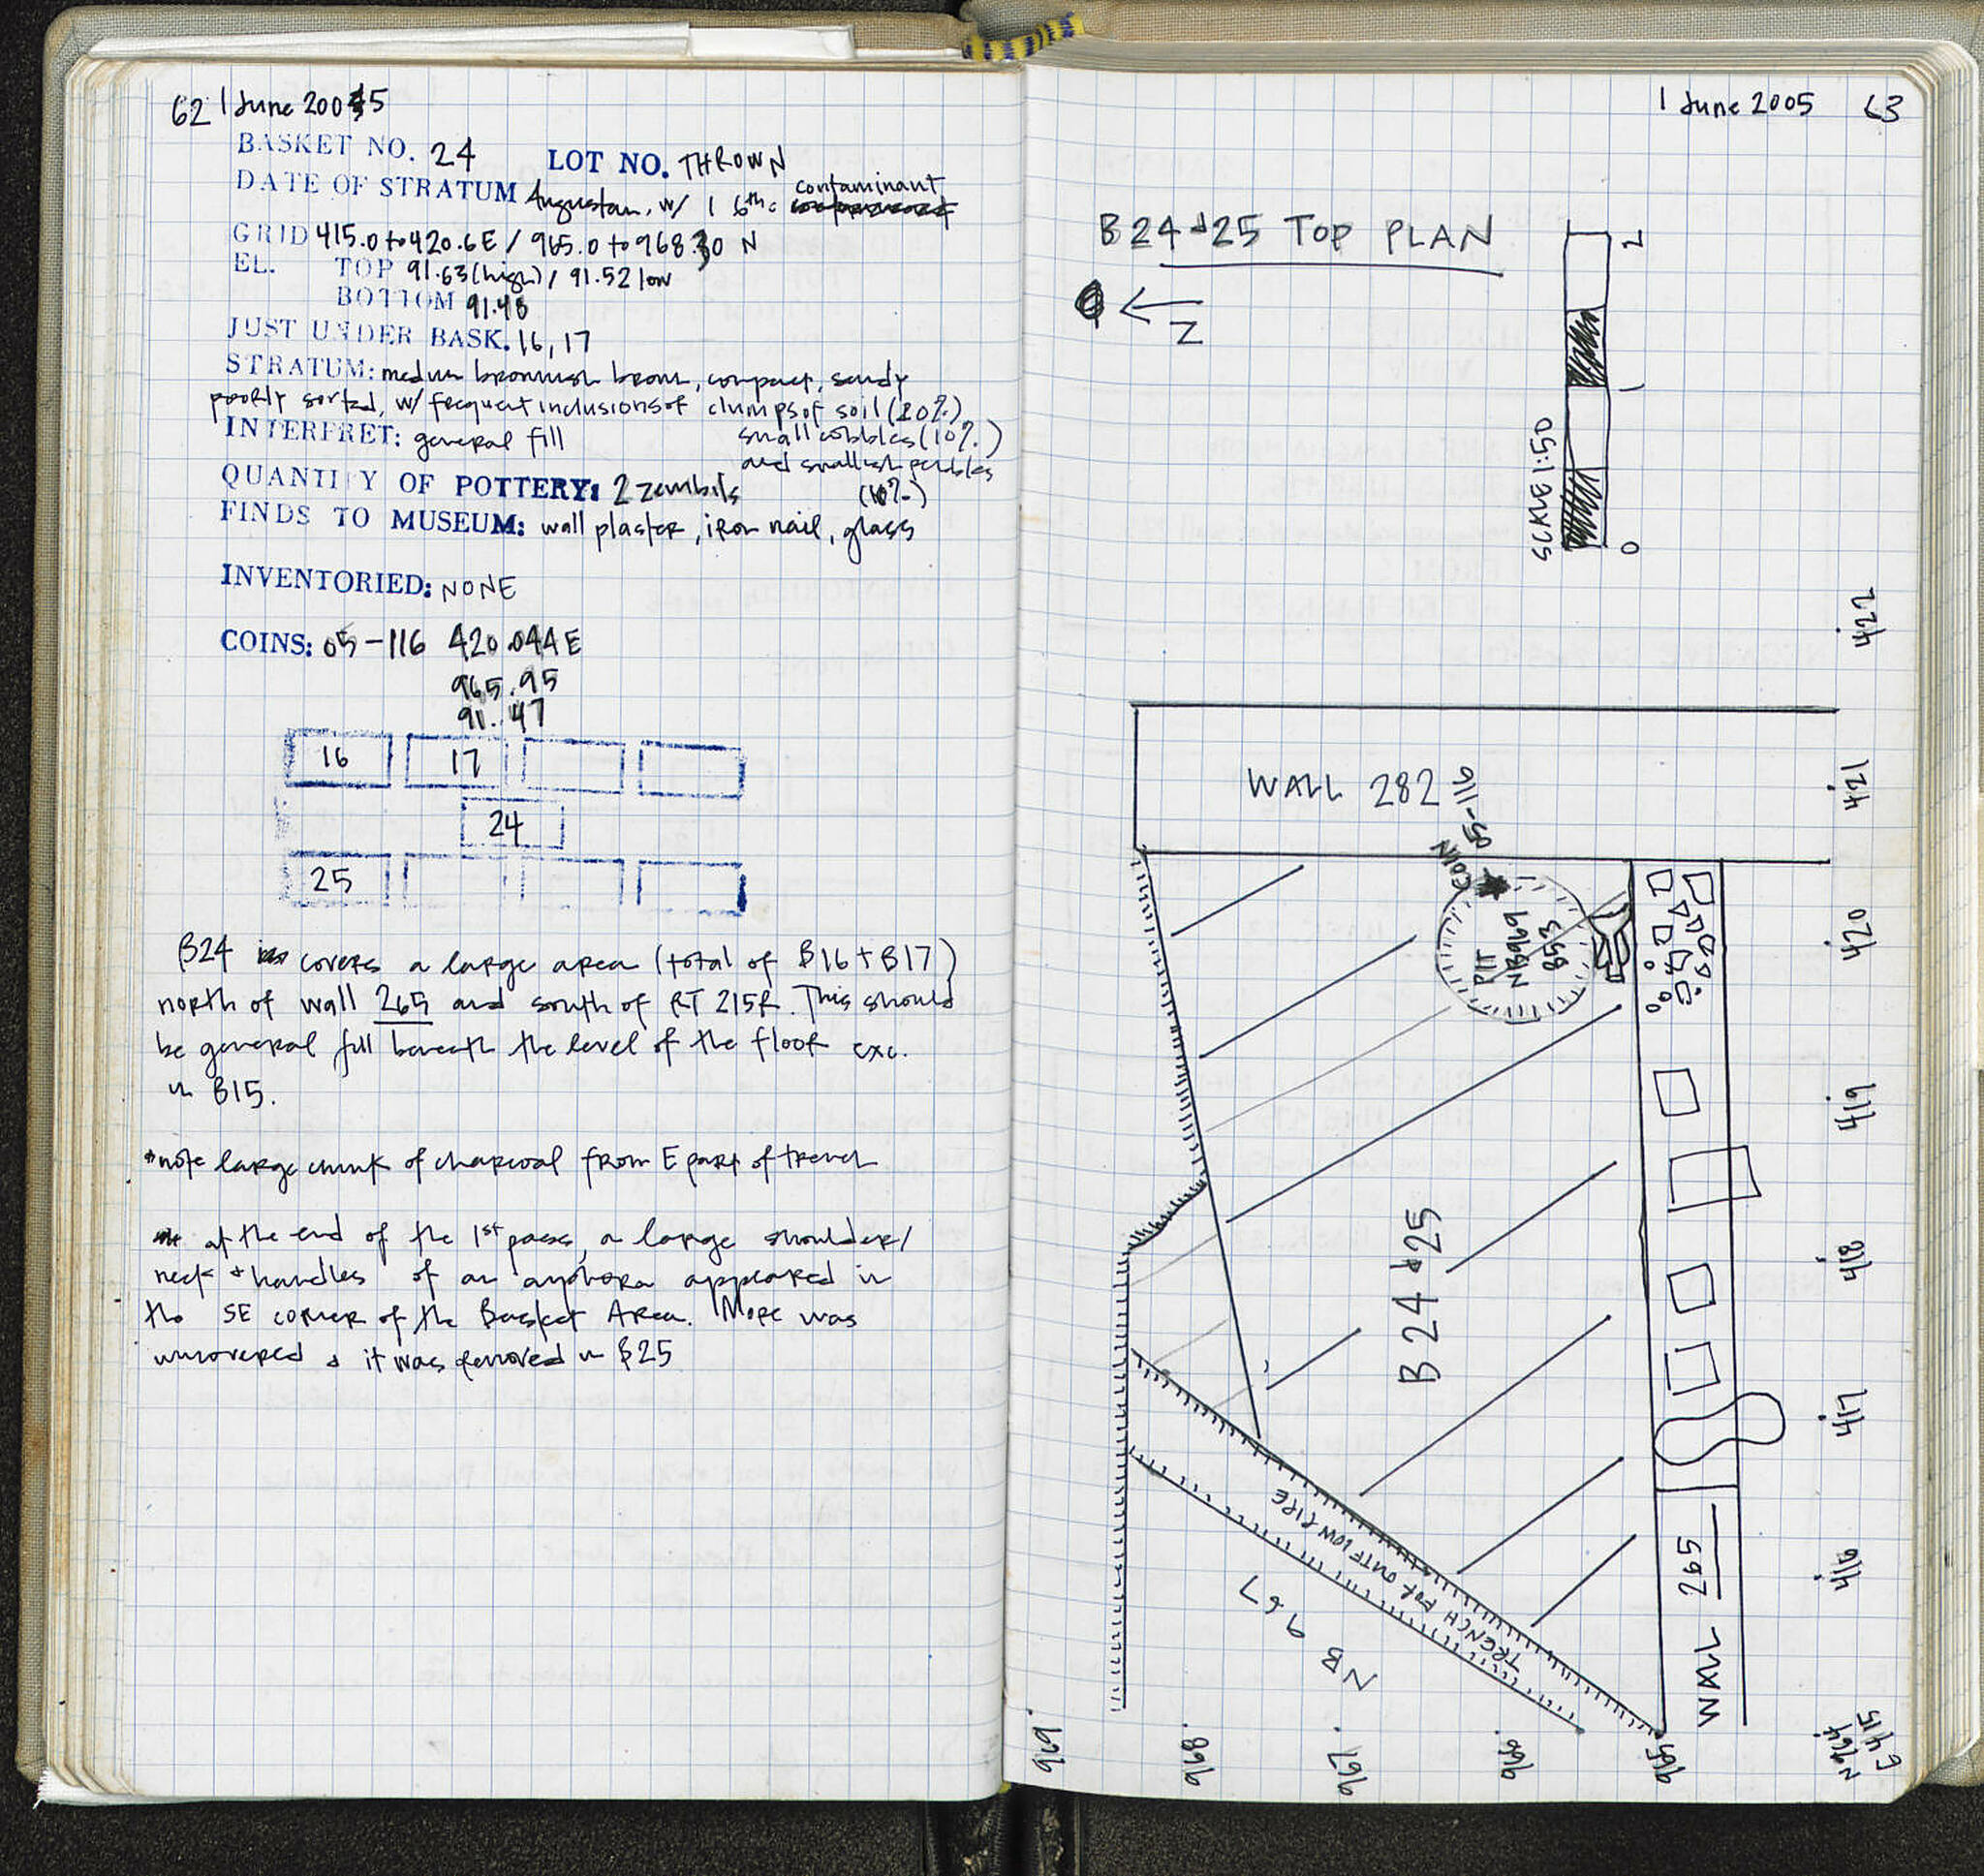 62 1 June 2005
BASKET NO. 24 LOT NO. THROWN
DATE OF STRATUM Augustan, w/ 1 6th c contaminant
GRID 415.0 to 420.6 E / 965.0 to 968.30 N
EL. TOP 91.63 (high) / 91.52 low
BOTTOM 91.48
JUST UNDER BASK. 16, 17
STRATUM: medium brownish brown, compact, sandy
poorly sorted, w/ frequent inclusions of clumps of soil (20%)
small cobbles (10%)
and smallish pebbles
(10%)
INTERPRET: general fill
QUANTITY OF POTTERY: 2 zembils
FINDS TO MUSEUM: wall plaster, iron nail, glass
INVENTORIED: NONE
COINS: 05-116 420.044 E
965.95
91.47
16 17
24
25
B24 covers a large area (total of B16 + B17)
north of wall 265 and south of RT 215R. This should
be general fill beneath the level of the floor exc.
in B15.
*note large chunk of charcoal from E part of trench
at the end of the 1st pass, a large shoulder/
neck + handles of an amphora appeared in
the SE corner of the Basket Area. More was
uncovered & it was removed in B25
1 June 2005 63
B24+25 TOP PLAN
N
SCALE 1:50
0 1 2
WALL 282
COIN 05-116
PIT
NB969
B53
B24+25
TRENCH FOR OUTFLOW PIPE
NB 967
WALL 265
422
421
420
419
418
417
416
E 415
N 964
969. 968. 967. 966. 965